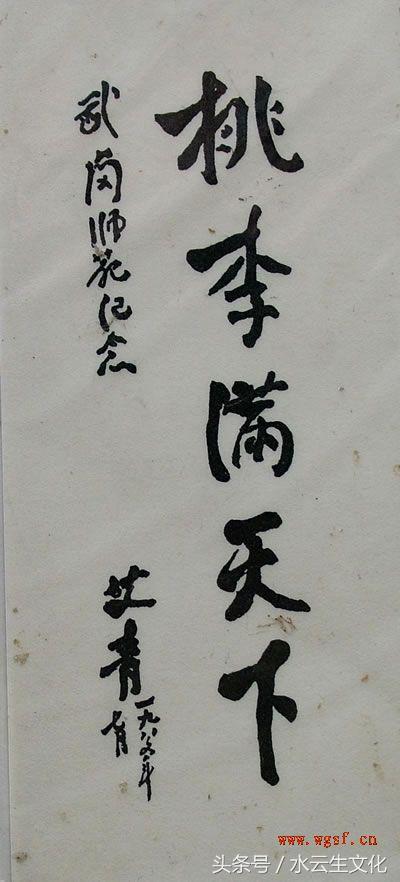 桃李满天下
武岡师范纪念
艾青
一九八六年
www.wgsf.cn
头条号/水云生文化